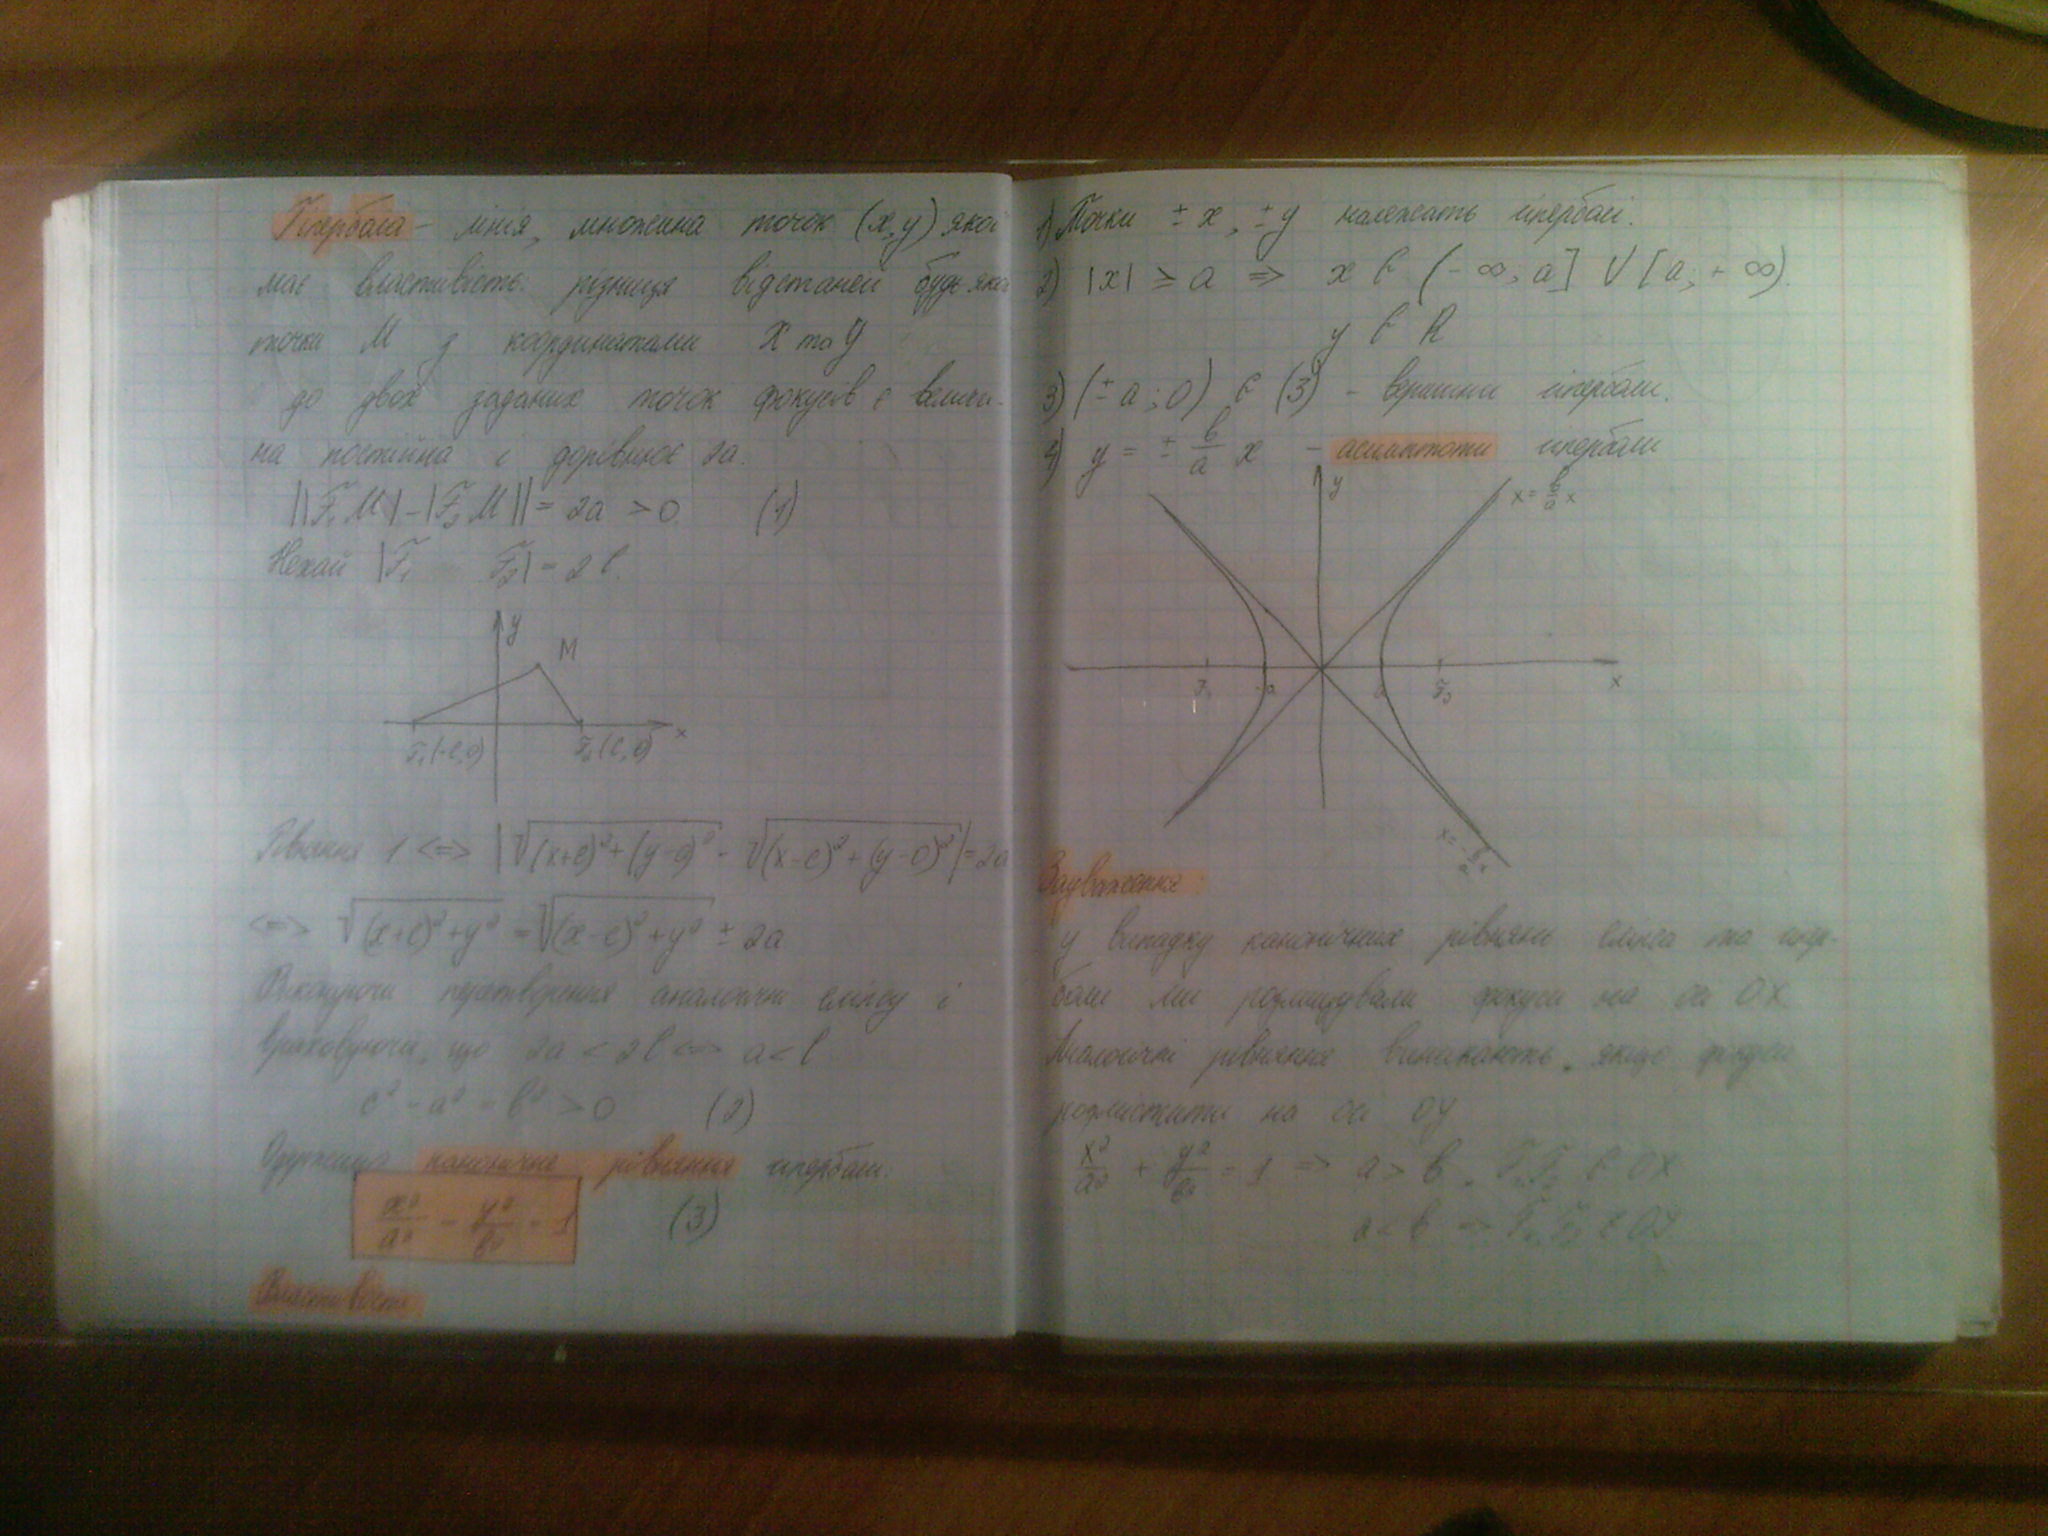 Гіпербола - лінія, множина точок (x, y) якої
має властивість: різниця відстаней будь якої
точки M з координатами X та Y
до двох заданих точок фокусів є величи-
на постійна і дорівнює 2a.
||F₁M| - |F₂M|| = 2a > 0 (1)
Нехай |F₁ F₂| = 2c.
y
M
F₁(-c, 0) F₂(c, 0) x
Рівняння 1 <=> |√(x+c)²+(y-0)² - √(x-c)²+(y-0)²| = 2a
<=> √(x+c)²+y² = √(x-c)²+y² ± 2a
Виконуючи перетворення аналогічні еліпсу і
враховуючи, що 2a < 2c <=> a < c
c² - a² = b² > 0 (2)
Одержимо канонічне рівняння гіперболи:
x²/a² - y²/b² = 1 (3)
Властивості:
1) Точки ± x, ± y належать гіперболі.
2) |x| ≥ a => x ∈ (-∞, a] V [a; +∞).
y ∈ R
3) (± a; 0) ∈ (3) - вершини гіперболи.
4) y = ± b/a x - асимптоти гіперболи
y x = b/a x
F₁ -a a F₂ x
x = - b/a x
Зауваження:
у випадку канонічних рівнянь еліпса та гіпер-
боли ми розміщували фокуси на осі OX
Аналогічні рівняння виникають, якщо фокуси
розмістити на осі OY
x²/a² + y²/b² = 1 => a > b, F₁F₂ ∈ OX
a < b => F₁F₂ ∈ OY